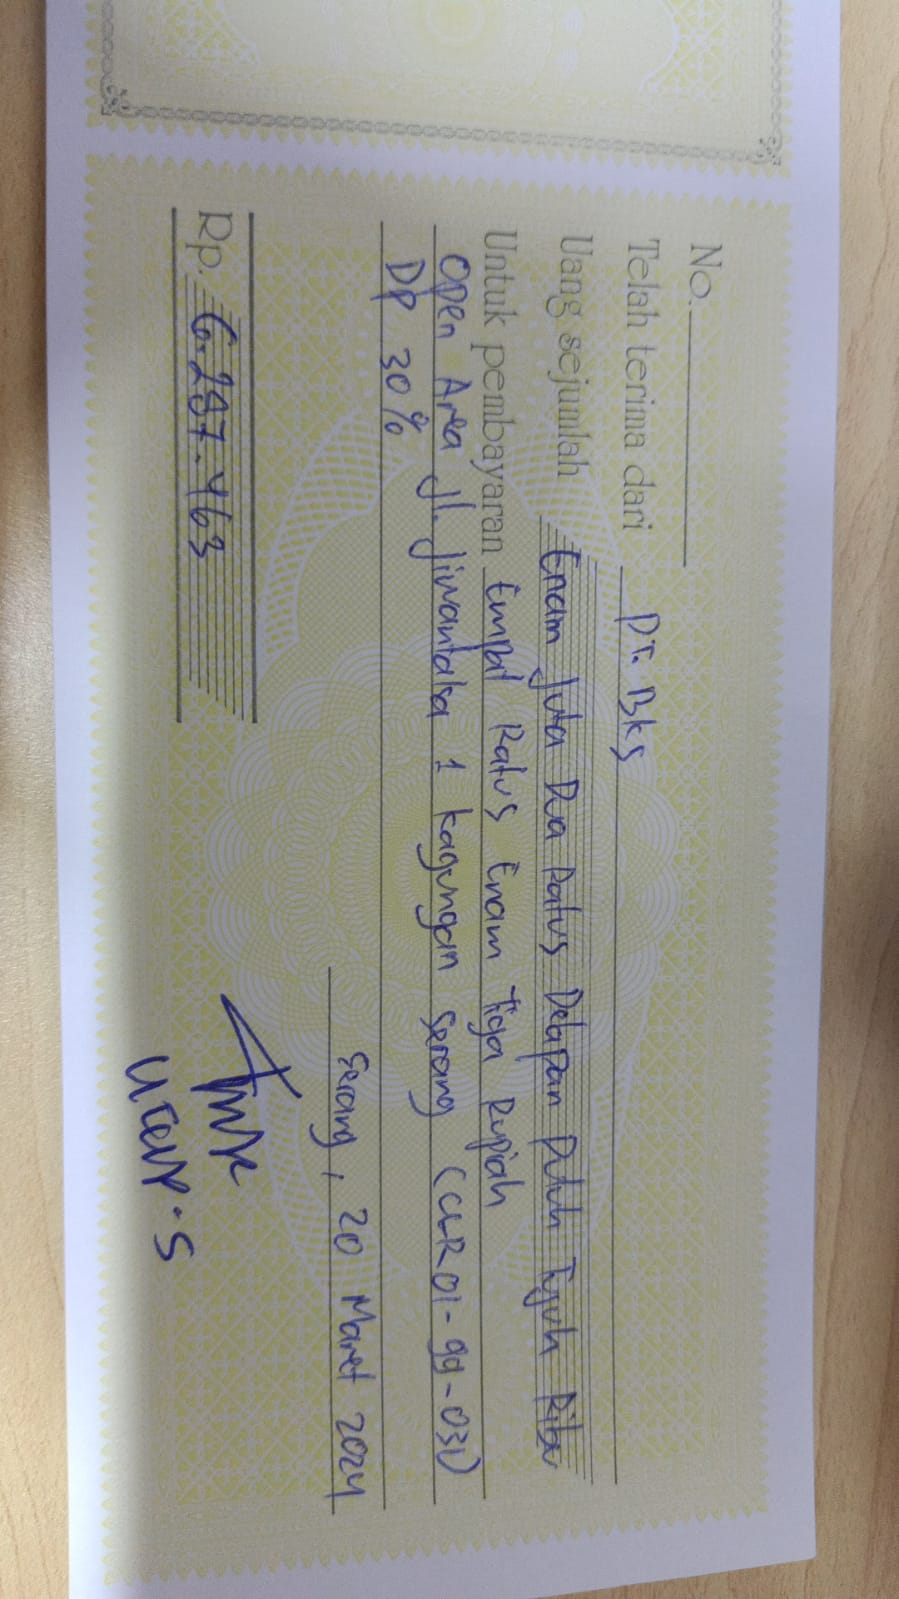 No.
Telah terima dari PT. Bks
Uang sejumlah Enam Juta Dua Ratus Delapan Puluh Tujuh Ribu
Untuk pembayaran Empat Ratus Enam Tiga Rupiah
Open Area Jl. Jiwantaka 1 kagungan Serang (CLR01-99-031)
DP 30%
Serang, 20 Maret 2024
Rp. 6.287.463
UCUP.S